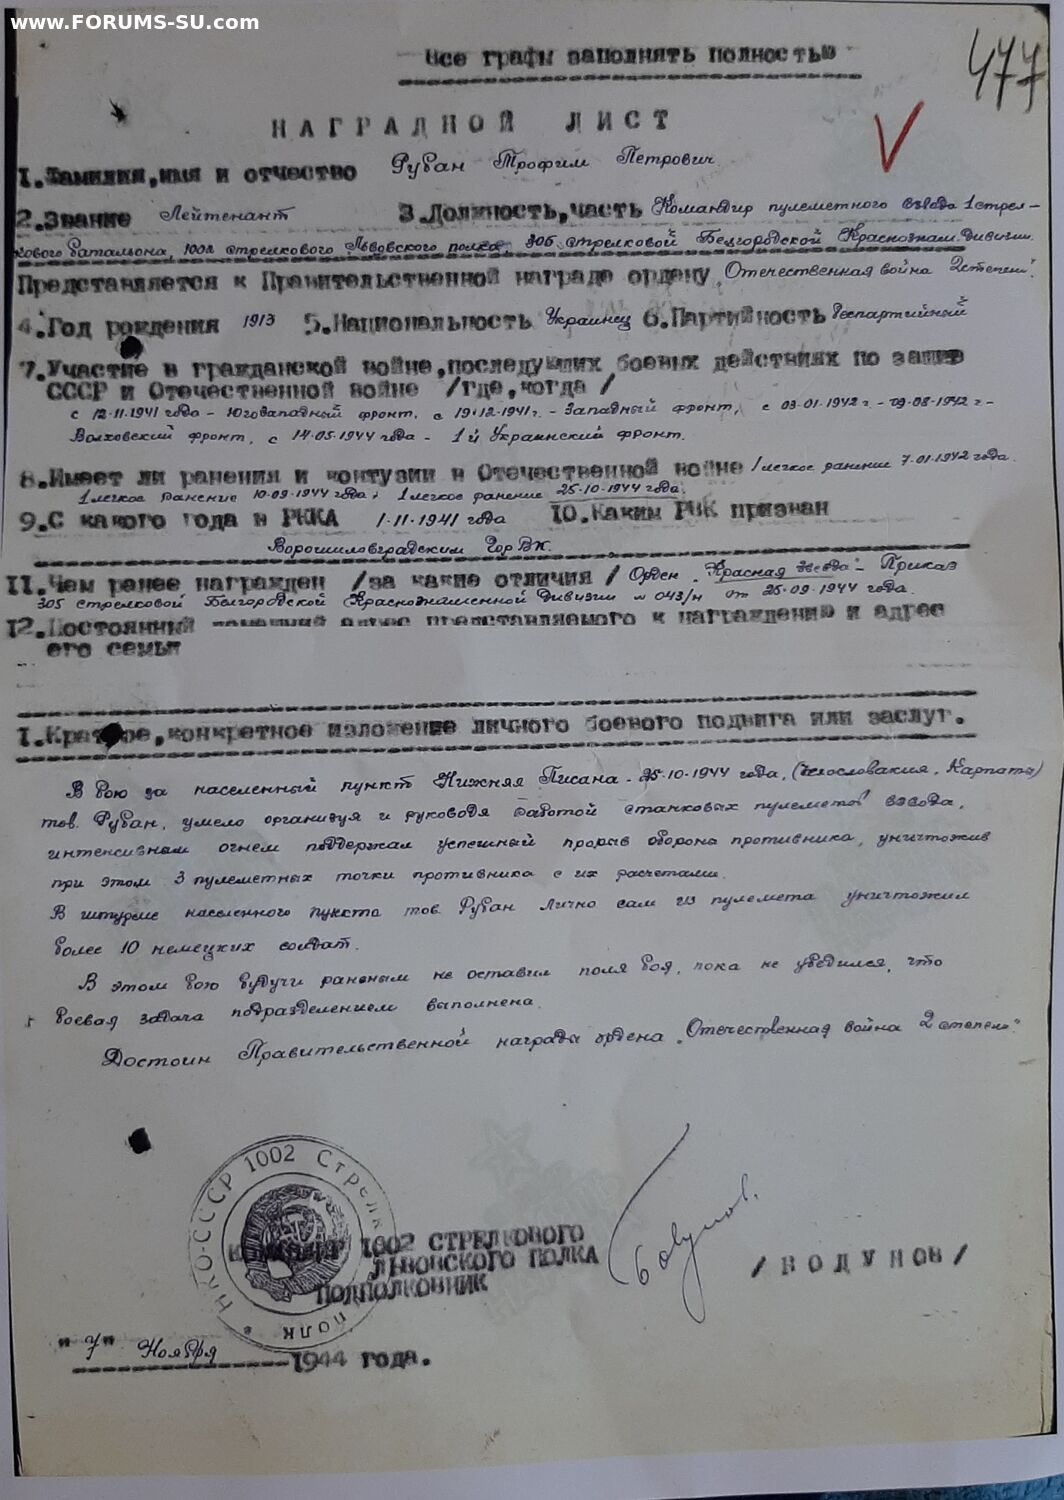 www.FORUMS-SU.com
Все графы заполнять полностью
477
НАГРАДНОЙ ЛИСТ
1.Фамилия,имя и отчество Рубан Трофим Петрович
2.Звание Лейтенант 3.Должность,часть Командир пулеметного взвода 1 стрел-
кового батальона, 1002 стрелкового Львовского полка, 305 стрелковой Белгородской Краснознам. дивизии.
Представляется к Правительственной награде ордену „Отечественная война 2 степени".
4.Год рождения 1913 5.Национальность Украинец 6.Партийность беспартийный
7.Участие в гражданской войне,последующих боевых действиях по защите
СССР и Отечественной войне /где,когда/
с 12-11-1941 года - Югозападный фронт, с 19-12-1941 г. - Западный фронт, с 03-01-1942 г. - 09-08-1942 г -
Волховский фронт, с 14-05-1944 года - 1й Украинский фронт.
8.Имеет ли ранения и контузии в Отечественной войне 1 легкое ранение 7-01-1942 года.
1 легкое ранение 10-09-1944 года; 1 легкое ранение 25-10-1944 года.
9.С какого года в РККА 1-11-1941 года 10.Каким РВК призван
Ворошиловградским Гор ВК.
11.Чем ранее награжден /за какие отличия/ Орден „Красная звезда" - Приказ
305 стрелковой Белгородской Краснознаменной дивизии № 043/н от 25-09-1944 года.
12.Постоянный домашний адрес представляемого к награждению и адрес
его семьи
1.Краткое,конкретное изложение личного боевого подвига или заслуг.
В бою за населенный пункт Нижняя Писана - 25-10-1944 года, (Чехословакия, Карпаты)
тов. Рубан, умело организуя и руководя работой станковых пулеметов взвода,
интенсивным огнем поддержал успешный прорыв обороны противника, уничтожив
при этом 3 пулеметных точки противника с их расчетами.
В штурме населенного пункта тов. Рубан лично сам из пулемета уничтожил
более 10 немецких солдат.
В этом бою будучи раненым не оставил поля боя, пока не убедился, что
боевая задача подразделением выполнена.
Достоин Правительственной награды ордена „Отечественная война 2 степени".
НКО-СССР 1002 Стрелк полк
КОМАНДИР 1002 СТРЕЛКОВОГО
ЛЬВОВСКОГО ПОЛКА
ПОДПОЛКОВНИК
/ВОДУНОВ/
"7" Ноября 1944 года.